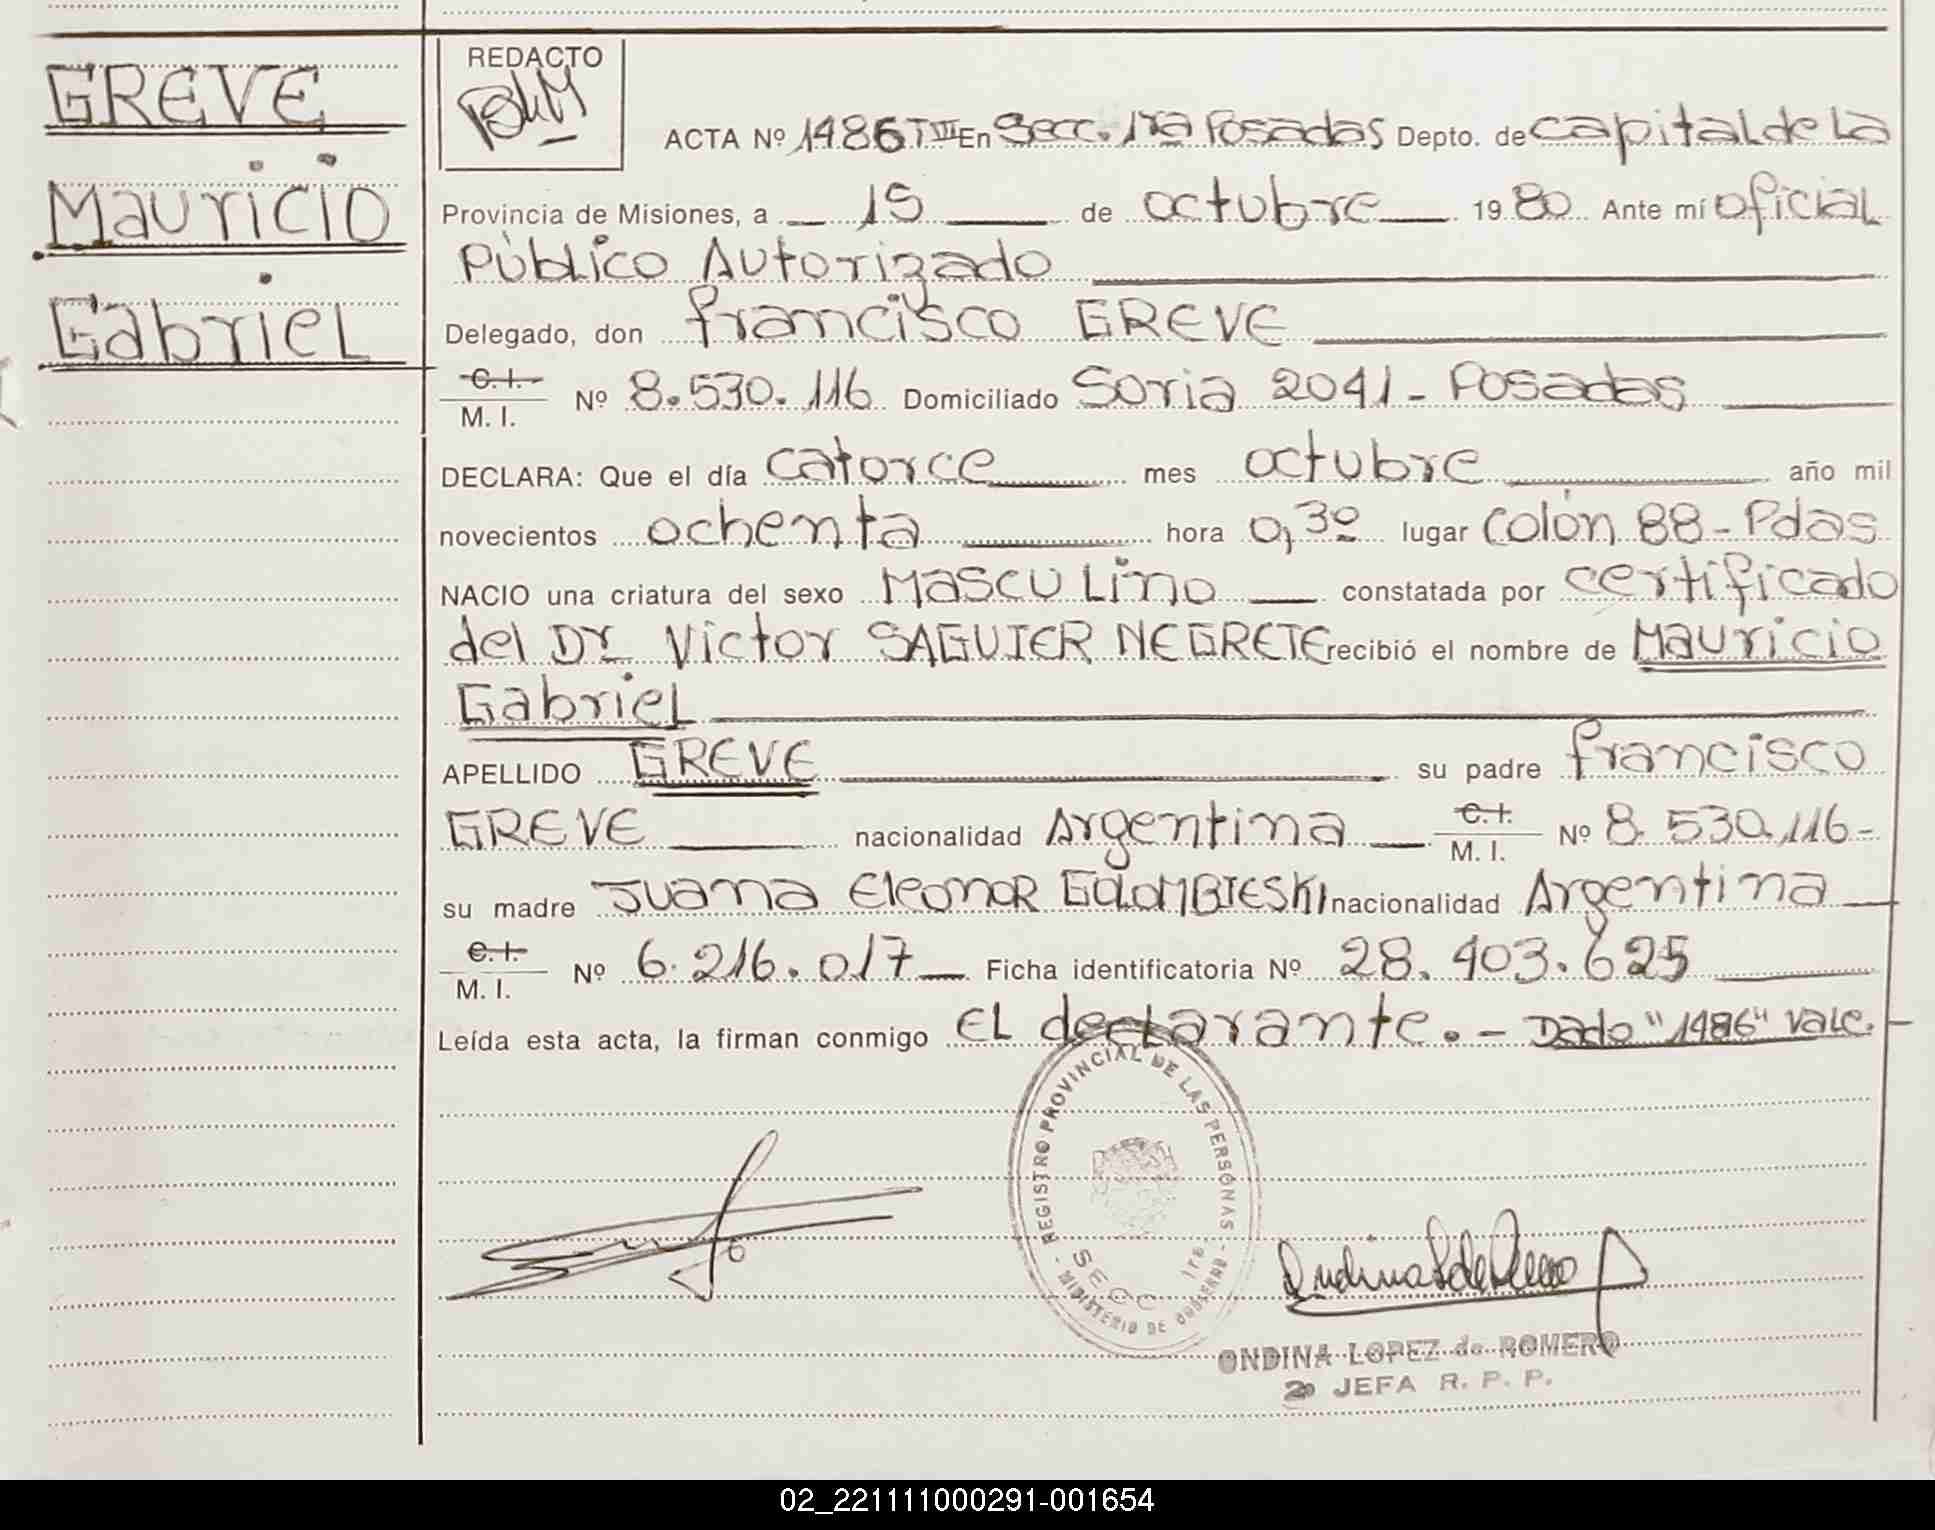 GREVE
Mauricio
Gabriel
REDACTO
ACTA Nº 1486 T III En Secc. 1ra Posadas Depto. de capital de la
Provincia de Misiones, a 15 de octubre 1980 Ante mí oficial
Público Autorizado
Delegado, don francisco GREVE
C. I.
M. I. Nº 8.530.116 Domiciliado Soria 2041 - Posadas
DECLARA: Que el día catorce mes octubre año mil
novecientos ochenta hora 0,30 lugar colón 88 - Pdas
NACIO una criatura del sexo Masculino constatada por certificado
del Dr Victor SAGUIER NEGRETE recibió el nombre de Mauricio
Gabriel
APELLIDO GREVE su padre francisco
GREVE nacionalidad Argentina C. I. M. I. Nº 8.530.116-
su madre Juana Eleonor GOLOMBIESKI nacionalidad Argentina
C. I.
M. I. Nº 6.216.017 Ficha identificatoria Nº 28.403.625
Leída esta acta, la firman conmigo EL declarante. - Dado "1486" vale.
- REGISTRO PROVINCIAL DE LAS PERSONAS -
MINISTERIO DE GOBIERNO
SECC 1ra
ONDINA LOPEZ de ROMERO
2º JEFA R. P. P.
02_221111000291-001654